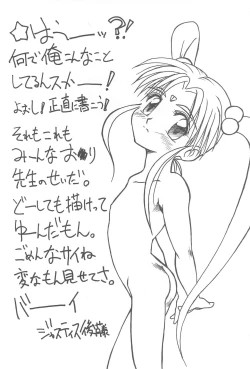 ☆はうーッ?!
何で俺こんなこと
してるんスかー!
よおし!正直に書こう!
それもこれも
みーんなお●り
先生のせいだ。
どーしても描けって
ゆーんだもん。
ごめんなサイね
変なもん見せてさ。
バーイ
ジャスティス後藤